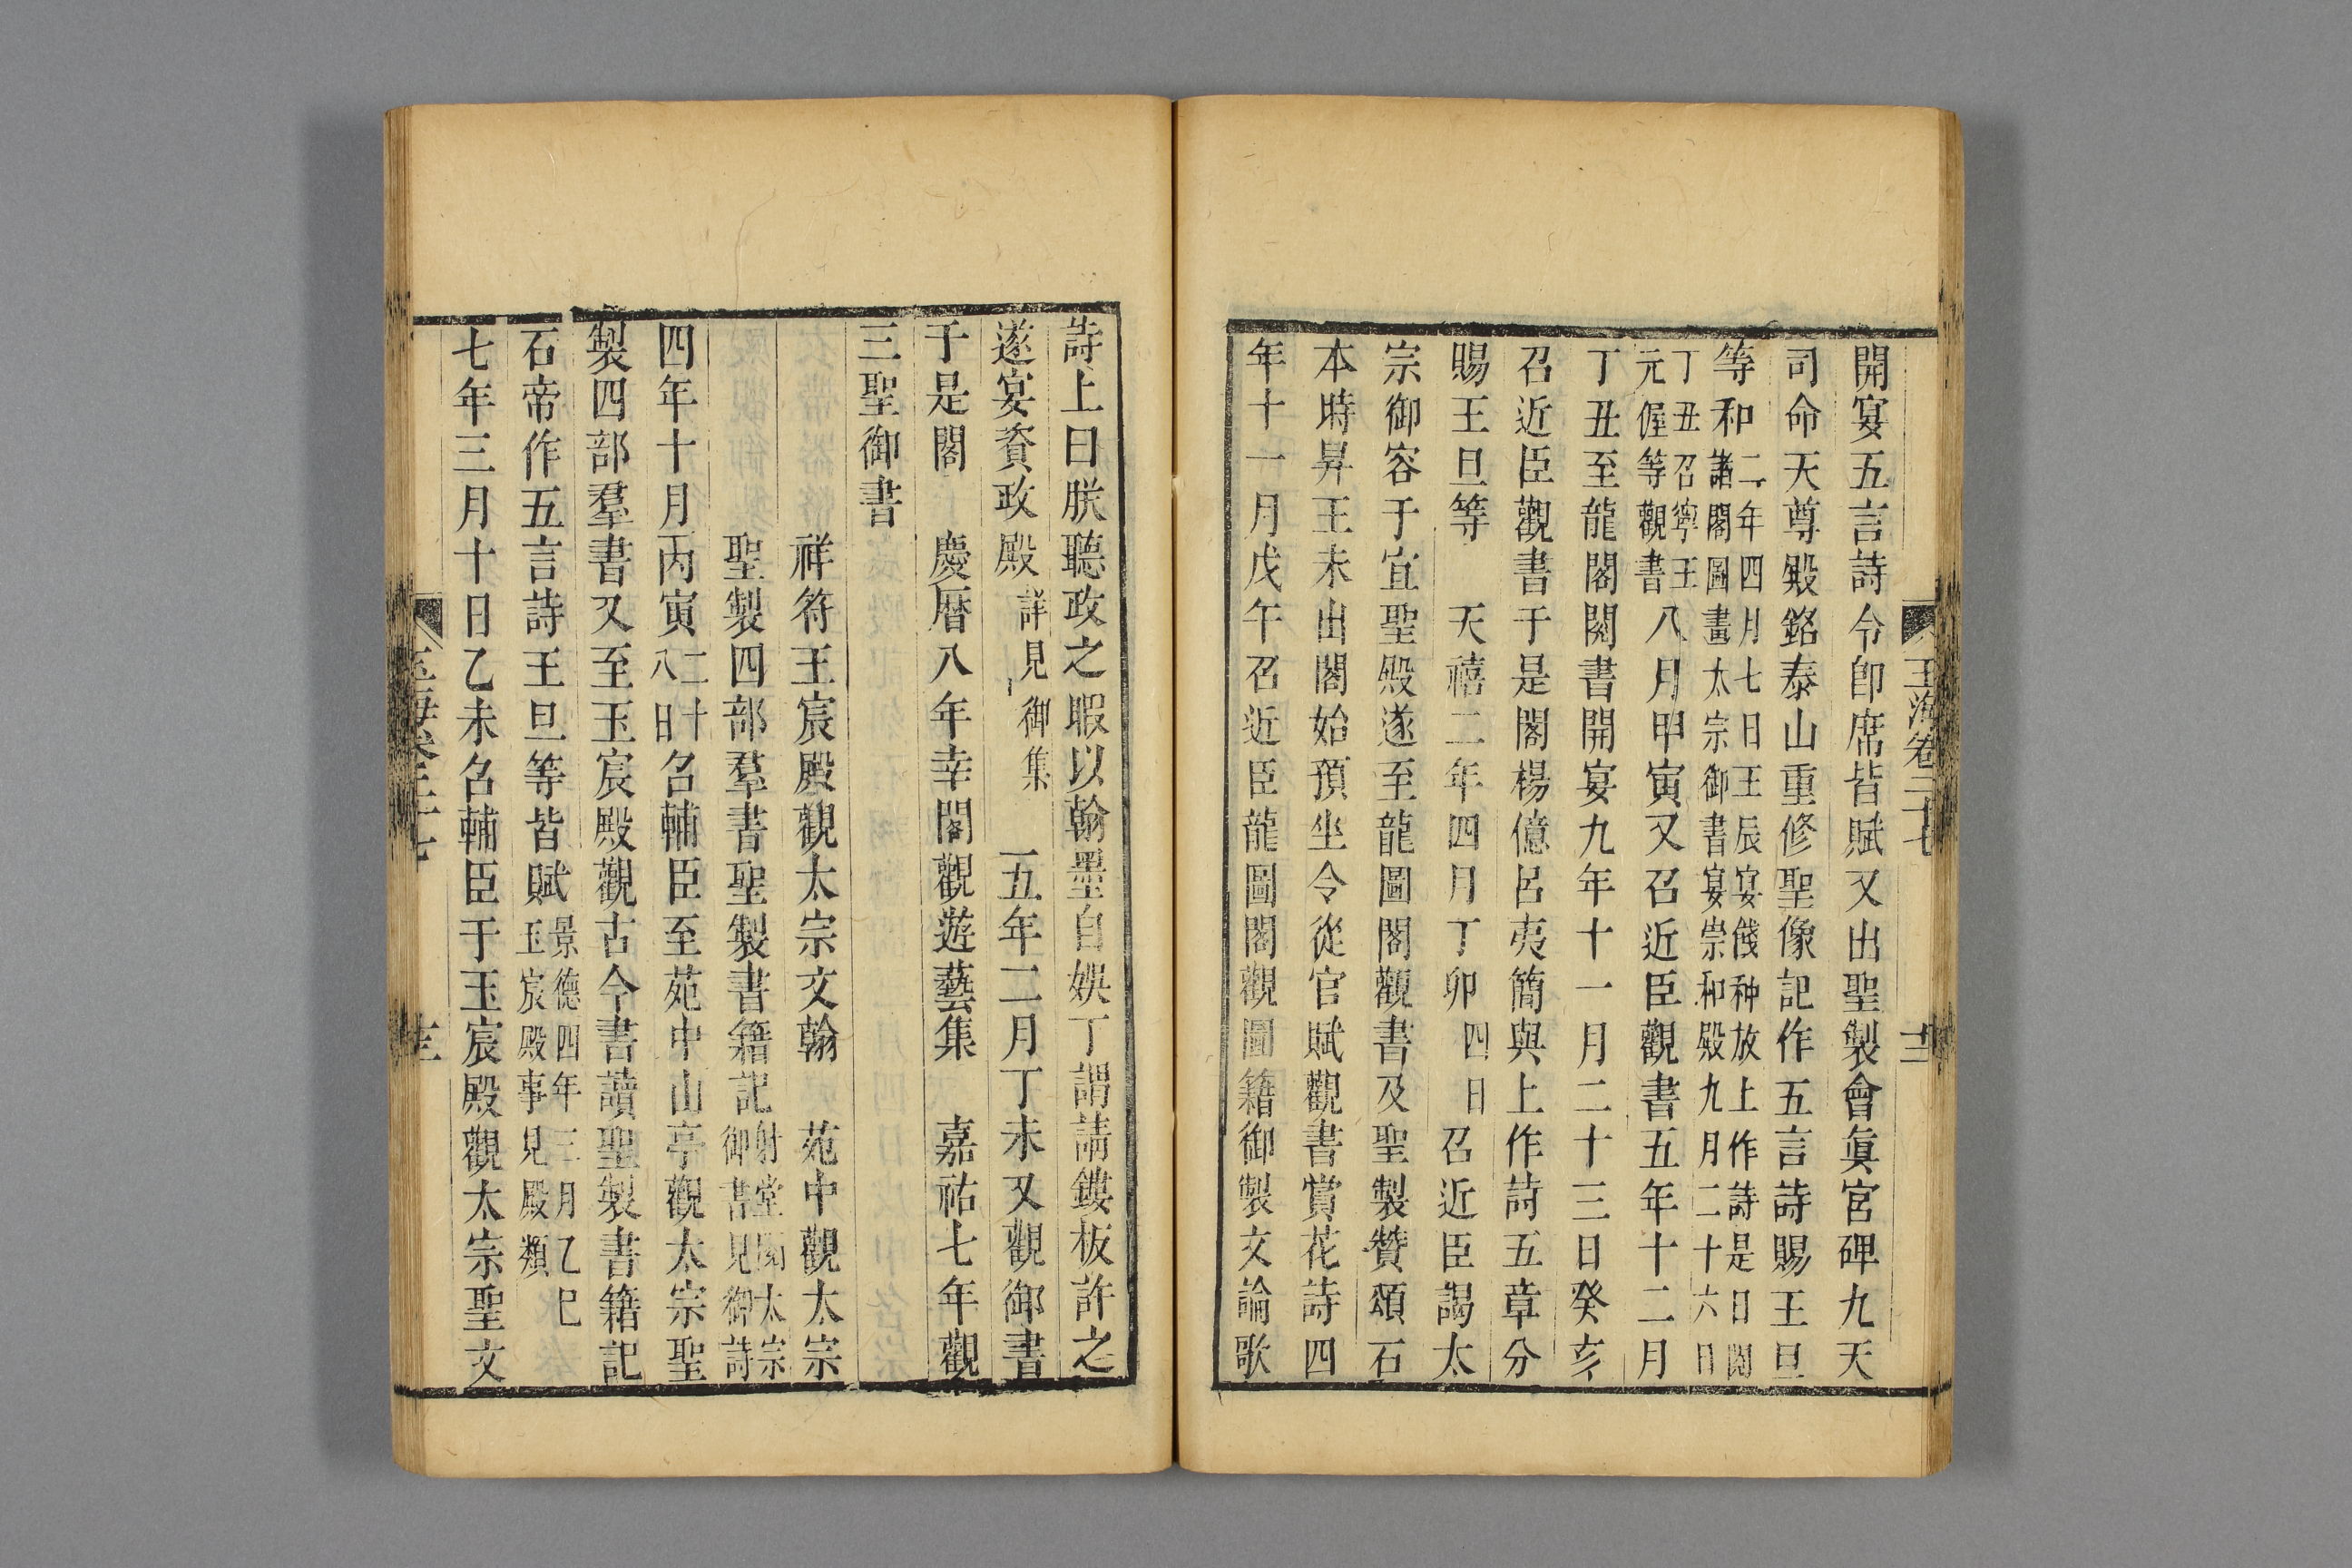 玉海卷二十七
十二
開宴五言詩令卽席皆賦又出聖製會眞宮碑九天
司命天尊殿銘泰山重修聖像記作五言詩賜王旦
等和二年四月七日王辰宴餞种放上作詩是日閱
諸閣圖畫太宗御書宴崇和殿九月二十六日
丁丑召寧王
元偓等觀書八月甲寅又召近臣觀書五年十二月
丁丑至龍閣閱書開宴九年十一月二十三日癸亥
召近臣觀書于是閣楊億呂夷簡與上作詩五章分
賜王旦等　天禧二年四月丁卯四日召近臣謁太
宗御容于宜聖殿遂至龍圖閣觀書及聖製贊頌石
本時昇王未出閣始預坐令從官賦觀書賞花詩四
年十一月戊午召近臣龍圖閣觀圖籍御製文論歌
詩上曰朕聽政之暇以翰墨自娛丁謂請鏤板許之
遂宴資政殿詳見御集　五年二月丁未又觀御書
于是閣　慶曆八年幸閣觀遊藝集　嘉祐七年觀
三聖御書
祥符玉宸殿觀太宗文翰　苑中觀太宗
聖製四部羣書聖製書籍記射堂閱太宗
御書見御詩
四年十月丙寅二十
八日召輔臣至苑中山亭觀太宗聖
製四部羣書又至玉宸殿觀古今書讀聖製書籍記
石帝作五言詩王旦等皆賦景德四年三月乙巳
玉宸殿事見殿類
七年三月十日乙未召輔臣于玉宸殿觀太宗聖文
玉海卷二十七
十三